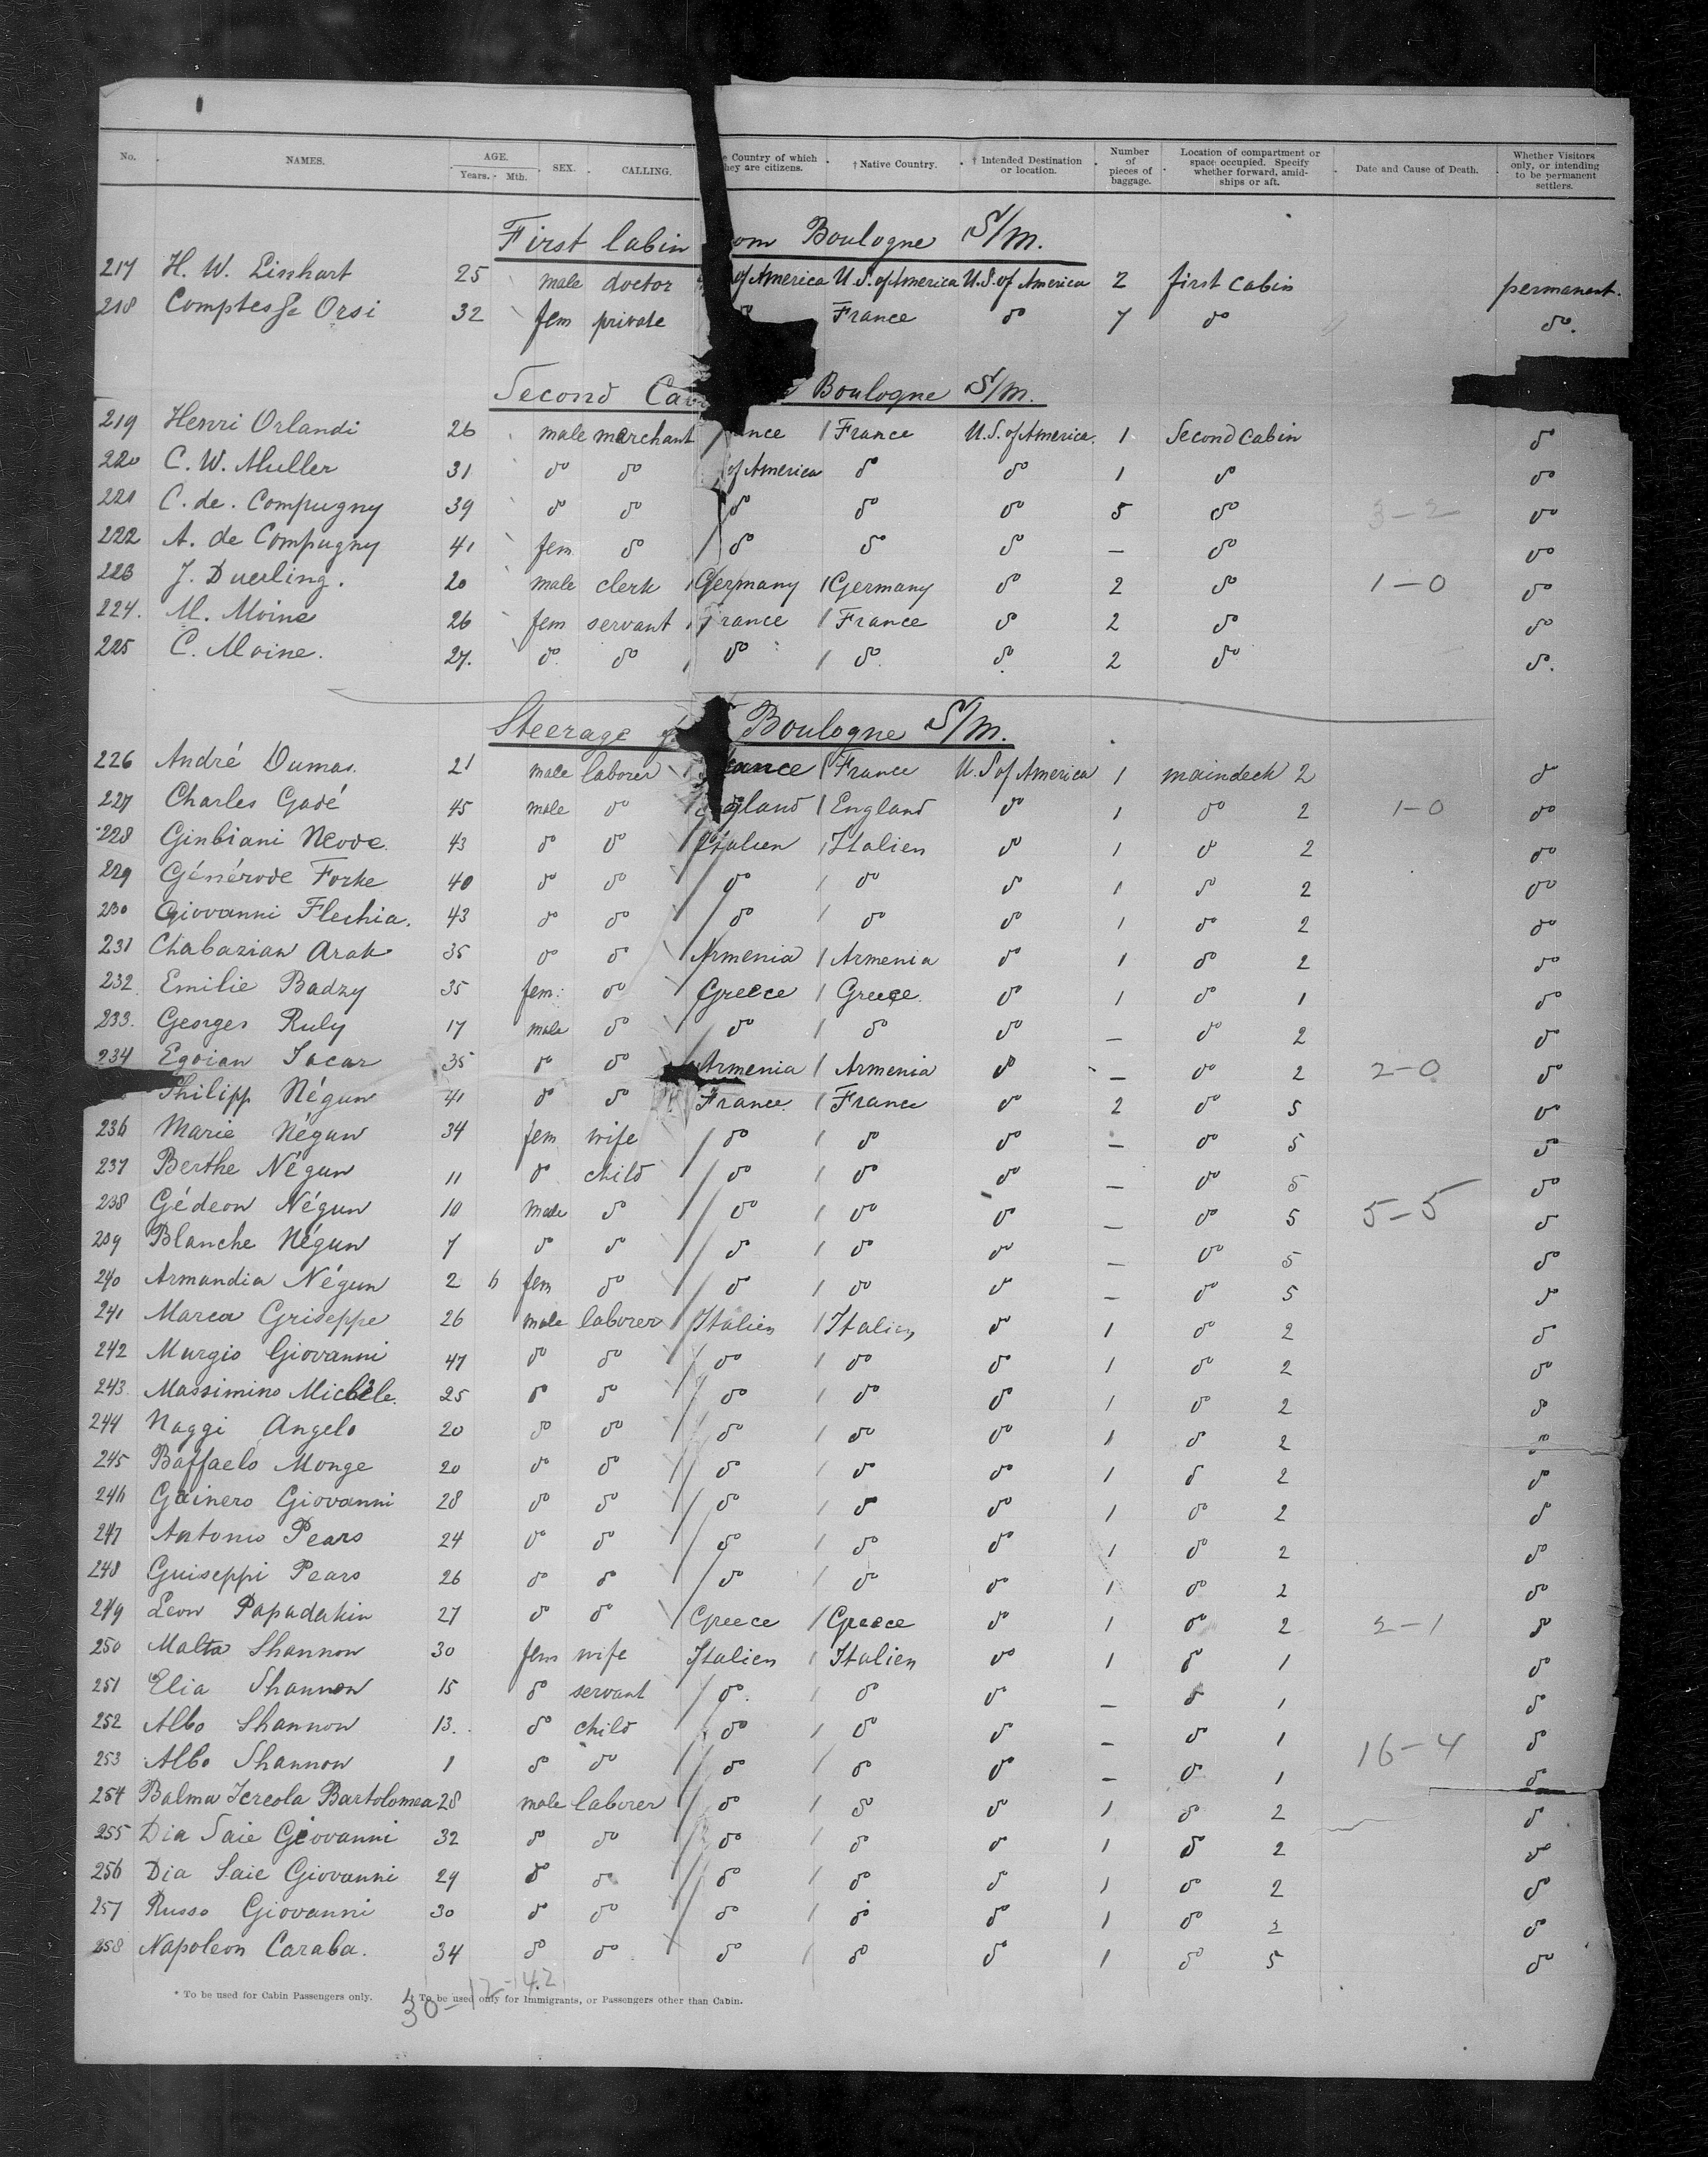 No. NAMES. AGE. Years. Mth. SEX. CALLING. e Country of which they are citizens. † Native Country. † Intended Destination or location. Number of pieces of baggage. Location of compartment or space occupied. Specify whether forward, amidships or aft. Date and Cause of Death. Whether Visitors only, or intending to be permanent settlers.
First Cabin om Boulogne S/m.
217 H. W. Linhart 25 male doctor of America U.S. of America U.S. of America 2 first cabin permanent.
218 Comptesse Orsi 32 fem private France do 7 do do.
Second Cab Boulogne S/m.
219 Henri Orlandi 26 male merchant ance France U.S. of America. 1 Second Cabin do
220 C. W. Muller 31 do do of America do do 1 do do
221 C. de. Compugny 39 do do do do do 5 do 3-2 do
222 A. de Compugny 41 fem do do do do — do do
223 J. Duerling. 20 male clerk Germany Germany do 2 do 1-0 do
224. M. Moine 26 fem servant France France do 2 do do
225 C. Moine. 27. do. do do do. do. 2 do do.
Steerage Boulogne S/m.
226 André Dumas. 21 male laborer France France U.S of America 1 maindeck 2 do
227 Charles Gadé 45 male do England England do 1 do 2 1-0 do
228 Ginbiani Neode. 43 do do Italien Italien do 1 do 2 do
229 Généróde Forke 40 do do do do do 1 do 2 do
230 Giovanni Flechia. 43 do do do do do 1 do 2 do
231 Chabazian Arak 35 do do Armenia Armenia do 1 do 2 do
232 Emilie Badzy 35 fem. do Greece Greece. do 1 do 1 do
233. Georges Ruly 17 male do do do do — do 2 do
234 Egoian Jacar 35 do do Armenia Armenia do — do 2 2-0 do
Philipp Négun 41 do do France France do 2 do 5 do
236 Marie Négun 34 fem wife do do do — do 5 do
237 Berthe Négun 11 do child do do do — do 5 do
238 Gédeon Négun 10 male do do do do — do 5 5-5 do
239 Blanche Négun 7 do do do do do — do 5 do
240 Armandia Négun 2 6 fem do do do do — do 5 do
241 Marca Griseppe 26 male laborer Italien Italien do 1 do 2 do
242 Murgio Giovanni 47 do do do do do 1 do 2 do
243. Massimino Michele. 25 do do do do do 1 do 2 do
244 Naggi Angelo 20 do do do do do 1 do 2 do
245 Baffaelo Monge 20 do do do do do 1 do 2 do
246 Gainero Giovanni 28 do do do do do 1 do 2 do
247 Antonio Pears 24 do do do do do 1 do 2 do
248 Guiseppi Pears 26 do do do do do 1 do 2 do
249 Leon Papadakin 27 do do Greece Greece do 1 do 2 2-1 do
250 Malta Shannon 30 fem wife Italien Italien do 1 do 1 do
251 Elia Shannon 15 do servant do. do do — do 1 do
252 Albo Shannon 13. do child do do do — do 1 do
253 Albo Shannon 1 do do do do do — do 1 16-4 do
254 Balma Icreola Bartolomea 28 male laborer do do do 1 do 2 do
255 Dia Saie Giovanni 32 do do do do do 1 do 2 do
256 Dia Saie Giovanni 29 do do do do do 1 do 2 do
257 Russo Giovanni 30 do do do do do 1 do 2 do
258 Napoleon Caraba. 34 do do do do do 1 do 5 do
30-12-42
* To be used for Cabin Passengers only. † To be used only for Immigrants, or Passengers other than Cabin.